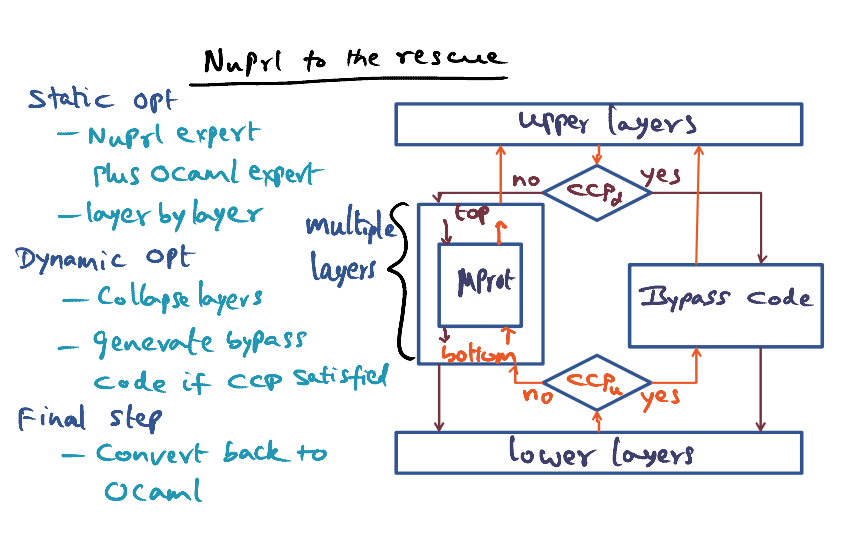 NuPrl to the rescue
Static opt
- NuPrl expert
plus OCaml expert
- layer by layer
Dynamic opt
- Collapse layers
- generate bypass
code if CCP satisfied
Final step
- Convert back to
OCaml
upper layers
no
CCPd
yes
multiple
layers
top
μProt
bottom
Bypass code
no
CCPu
yes
lower layers